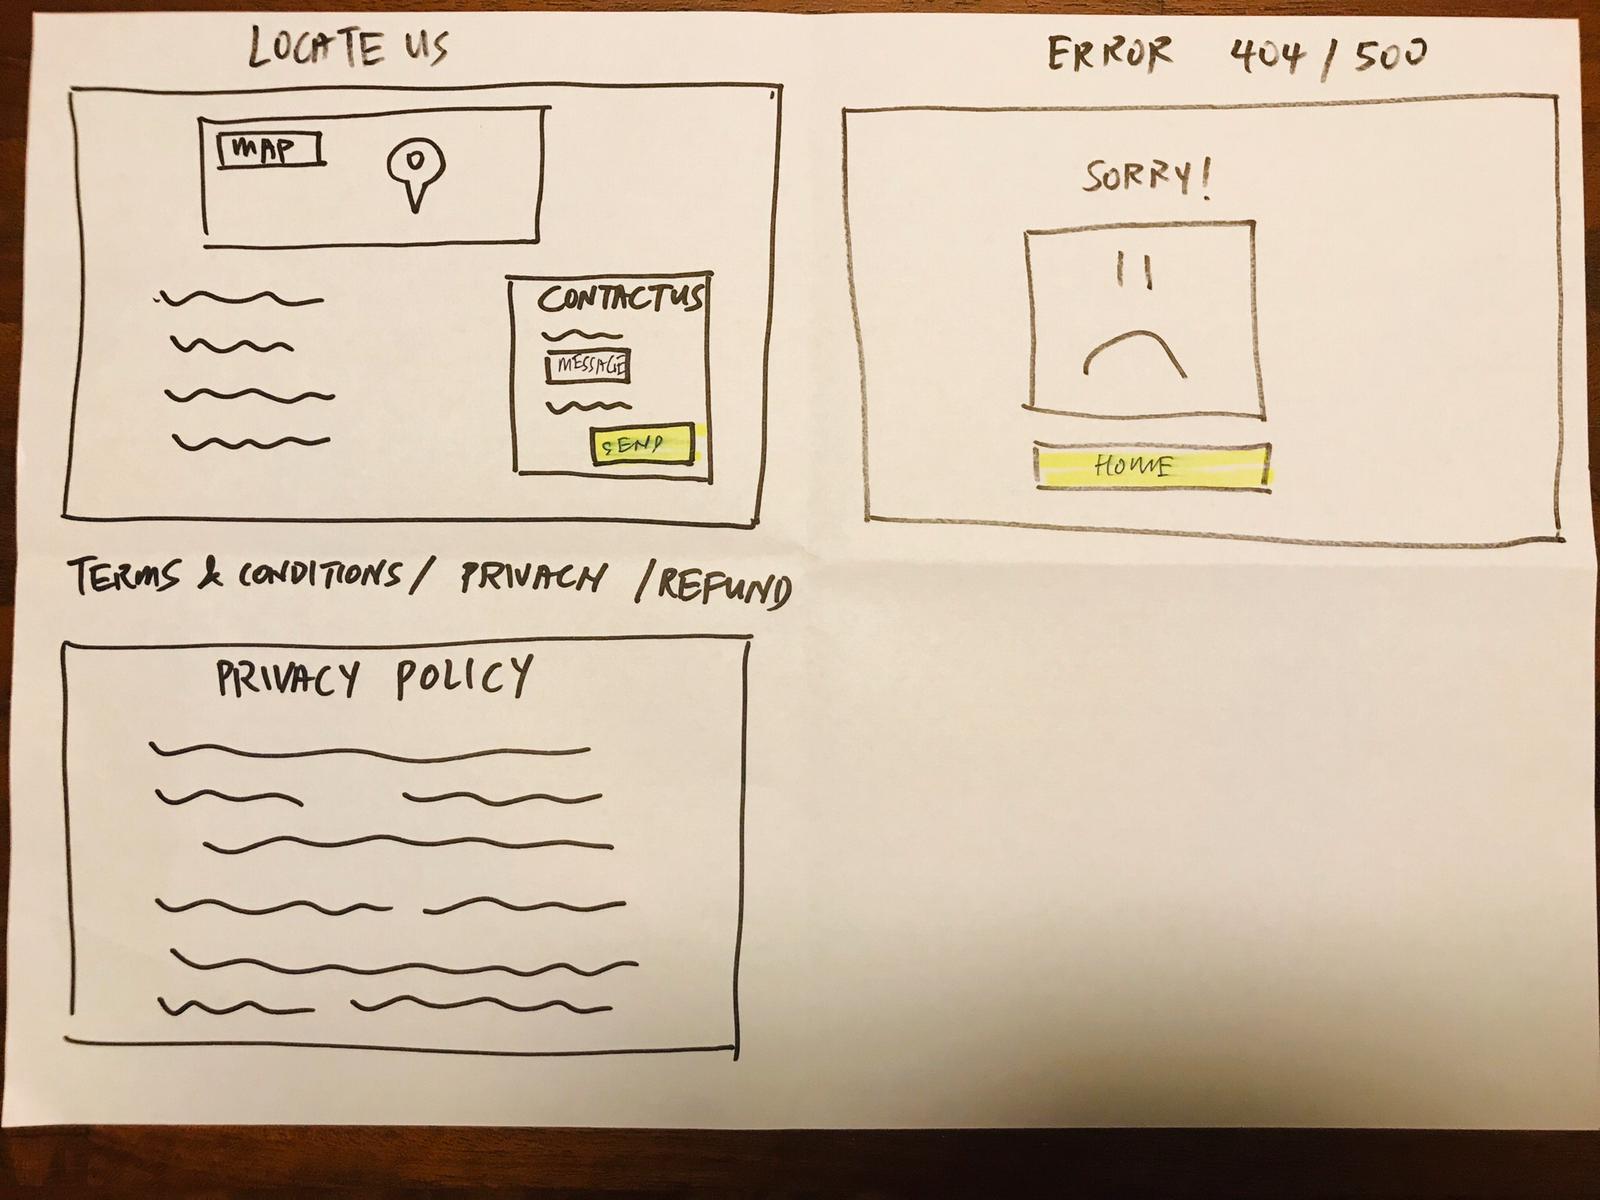 LOCATE US
MAP
CONTACT US
MESSAGE
SEND
ERROR 404 / 500
SORRY!
HOME
TERMS & CONDITIONS / PRIVACY / REFUND
PRIVACY POLICY